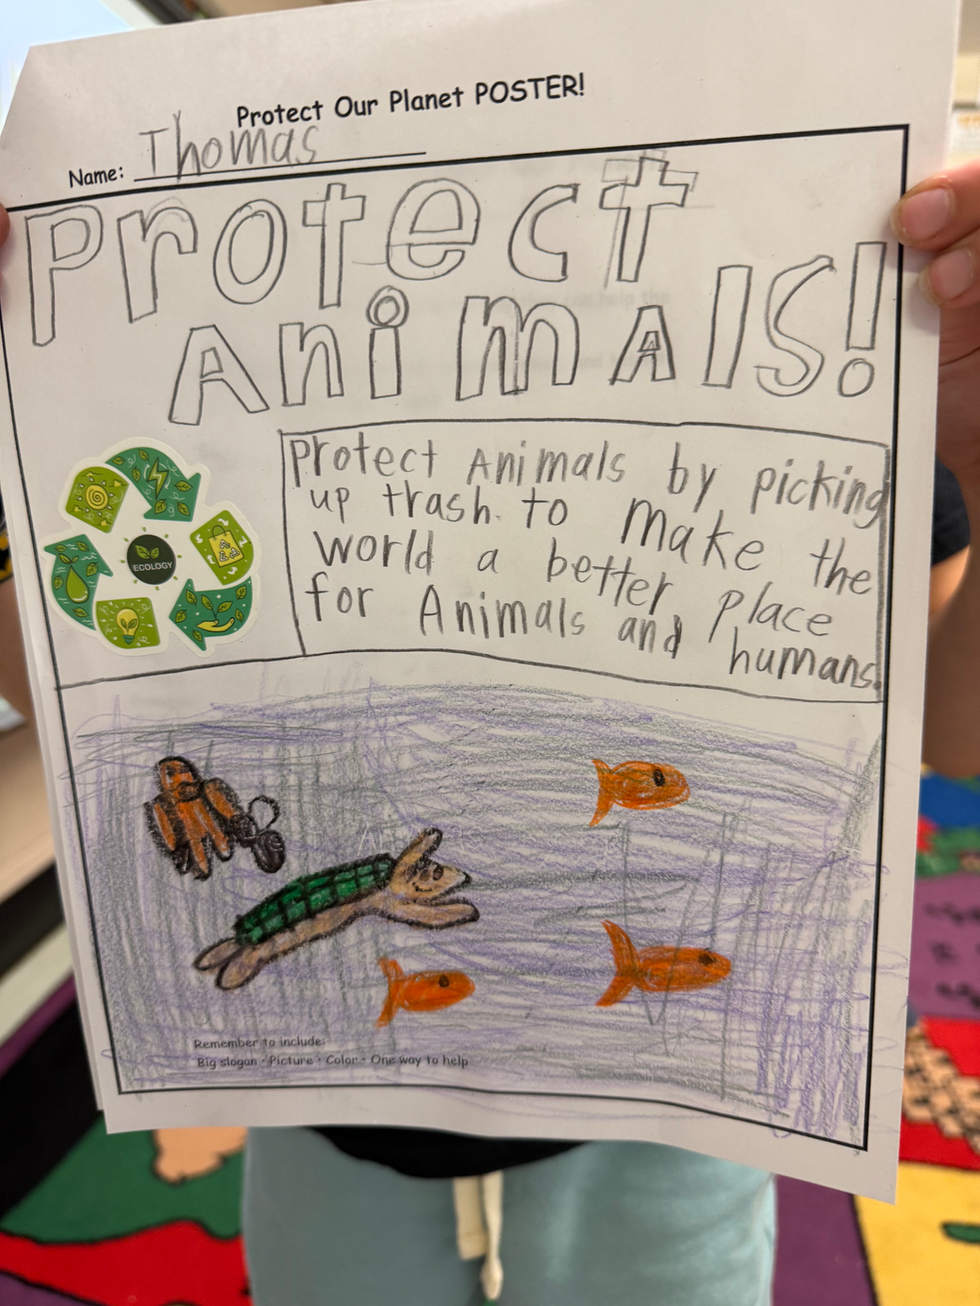 Protect Our Planet POSTER!
Name: Thomas
Protect
AnimAls!
protect Animals by picking
up trash. to make the
world a better place
for Animals and humans.
ECOLOGY
Remember to include:
Big slogan • Picture • Color • One way to help